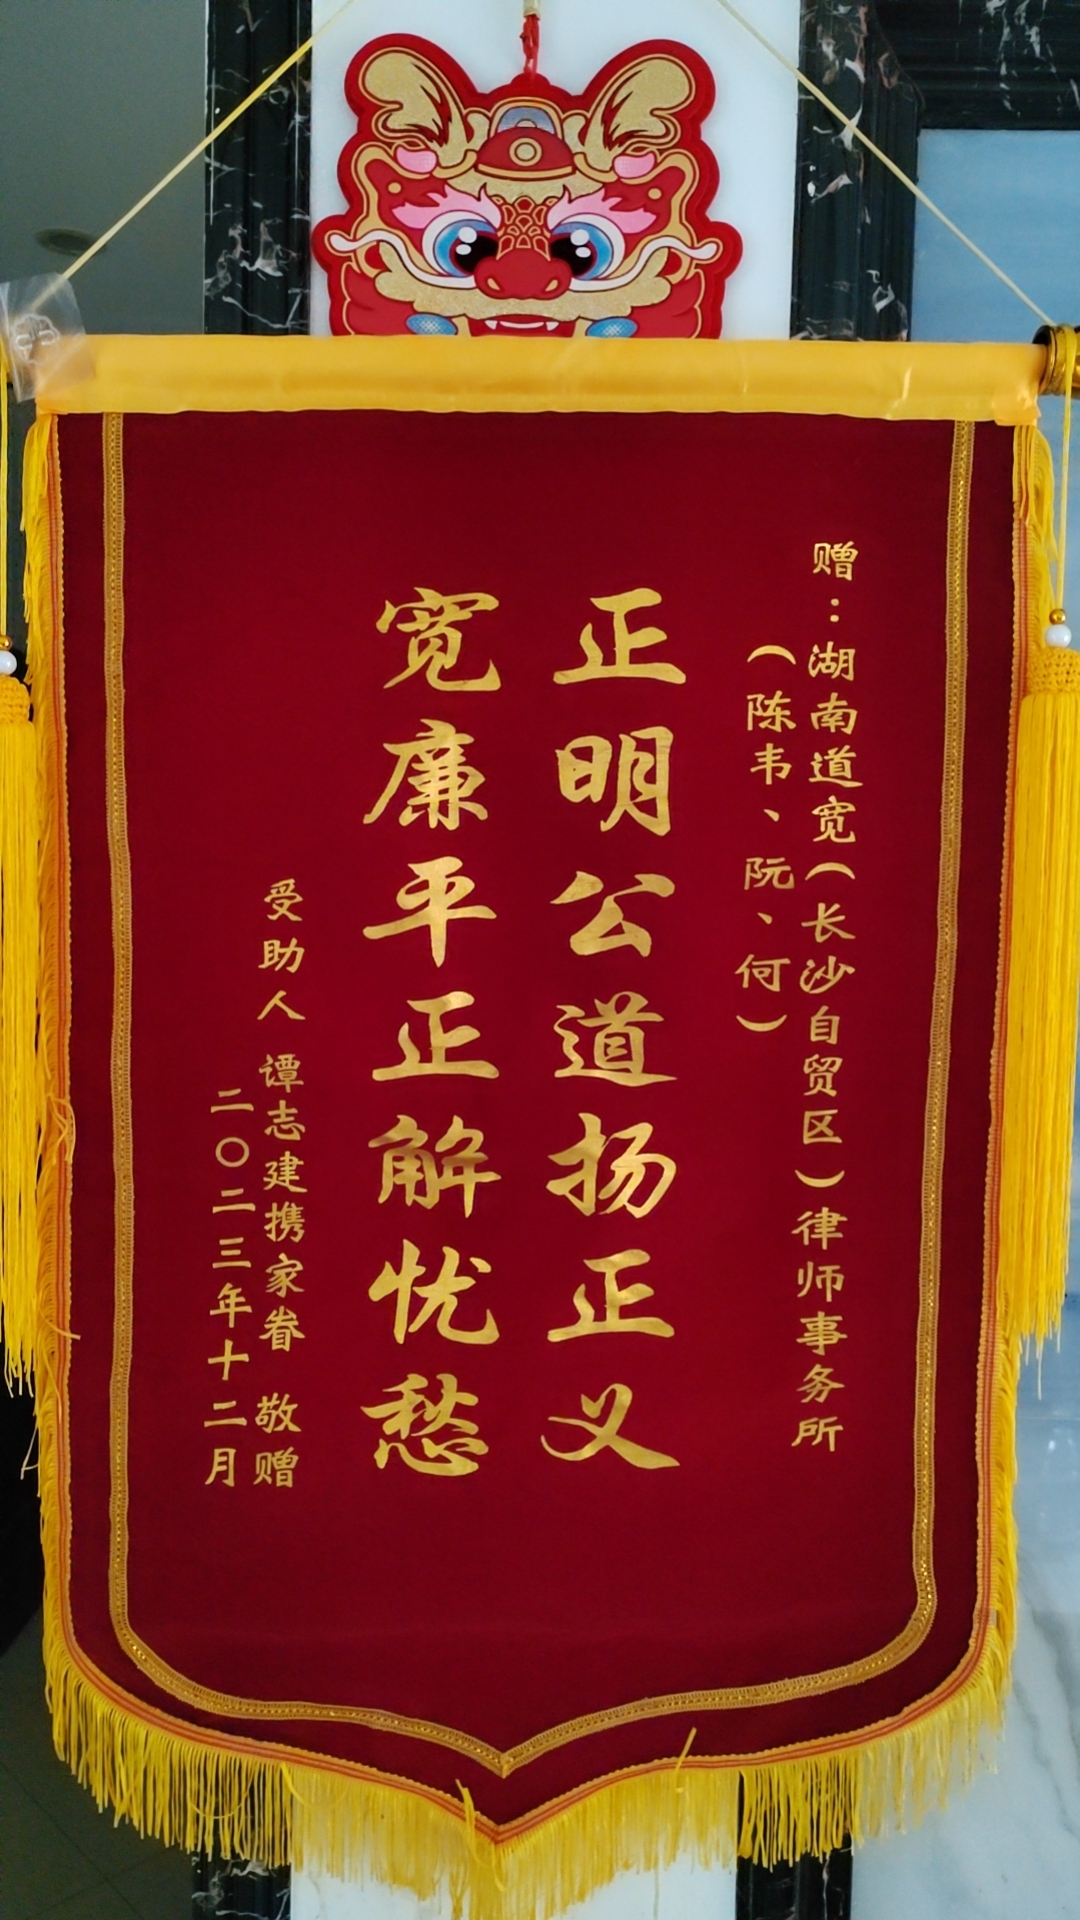 赠：湖南道宽（长沙自贸区）律师事务所
（陈韦、阮、何）
正明公道扬正义
宽廉平正解忧愁
受助人 谭志建携家眷 敬赠
二〇二三年十二月